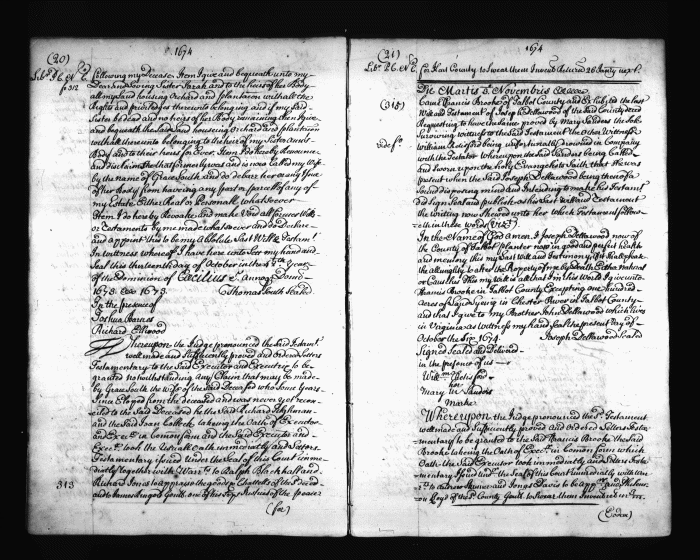 (20) 1674
following my Decease Item I give and bequeath unto my
Dear and Loving Sister Sarah and to the heirs of her Body
all my land housing Orchard and plantacon with all the
Rights and priviledges thereunto belonging and if my said
Sister be dead and no heirs of her Body remaining then I give
and bequeath the said Land housing Orchard and plantation
with all thereunto belonging to the heir of my Sister Ann's
Body and to their heirs for Ever Item I do hereby Renounce
and disclaime the that formerly was and is now called my wife
by the name of Grace South and do debarr her or any Issue
of her Body from having any part or parcell of any of
my Estate Either Real or Personall whatsoever
Item I do hereby Revoake and make Void all former Wills
or Testaments by me made whatsoever and do Declare
and appoint this to be my absolute last Will & Testamt
In witness whereof I have hereunto Sett my hand and
Seal this thirteenth day of October in the Year
of the Dominion of Cæcilius &c. annoq Domi
1673. 1673. Thomas South Sealed
In the presence of
Joshua Barnes
Richard Ellwood
Thereupon the Judge pronounced the said Testamt
well made and sufficiently proved and Ordered Letters
Testamentary to the said Executor and Executrix to be
granted notwithstanding any Claim that may be made
by Grace South the Wife of the said Deceased who Some Years
Since Eloped from the deceased and was never recon-
ciled to the Said Deceased the the said Richard
and the Said Joan taking the Oath of Executor
and Execx in Comon form and the said Executor and
Execx took the Usuall Oath immediately and Letters
Testamentary issued Under the Seal of this Court imme-
diately together with Warrt to Ralph Blackhall and
Richard Jones to appraise the goods & Chattells of the Deced
and to James Ringold Gentl. one of his Lops Justices of the peace
313
(for)
(21) 1674
for Kent County to Swear them Invent
Die Martis Novembris
(315)
Came Francis Brooke of Talbot County and Exhibited the last
Will and Testament of Joseph Dellawood of the Said County Deced
Requesting to have the same proved by Mary Sanders the Sole
surviving witness to the said Testament the other Witness
William being unfortunately drowned in Company
with the Testator Whereupon the said Sanders being Called
and Sworn upon the holy Evangelists saith that She was
present when the Said Joseph Dellawood being then of a
Sound disposing mind and Intending to make his Testamt
did Sign Seal and publish as his last Will and Testament
the writing now Shewed unto her which Testament follow-
eth in these words (Vizt)
In the Name of God amen I Joseph Dellawood now of
the County of Talbot planter now in good and perfect health
and meaning this my last Will and Testimony if it shall please
the almighty to alter the Property of me by Death Either natural
or Casuall this my Will is that what I have in this World I give unto
Francis Brooke in Talbot County Excepting one hundred
acres of Land Lying in Chester River in Talbot County
and that I give to my Brother John Dellawood which lives
in Virginia as witness my hand and Seal the present Day of
October the 1674 Joseph Dellawood Sealed
Signed Sealed and Delivered
in the presence of us
Mary Sanders
Marke
Whereupon the Judge pronounced the sd Testament
well made and Sufficiently proved and Ordered Letters Testa-
mentary to be granted to the said Francis Brooke the said
Brooke taking the Oath of Execr in Comon form which
Oath the said Executor took immediately and Letters Testa-
mentary Issued under the Seal of this Court immediately with Wart
to Andrew Skinner and Jonas Davis to be apprs
of the sd County Gentl. to Swear them
(Eodem)